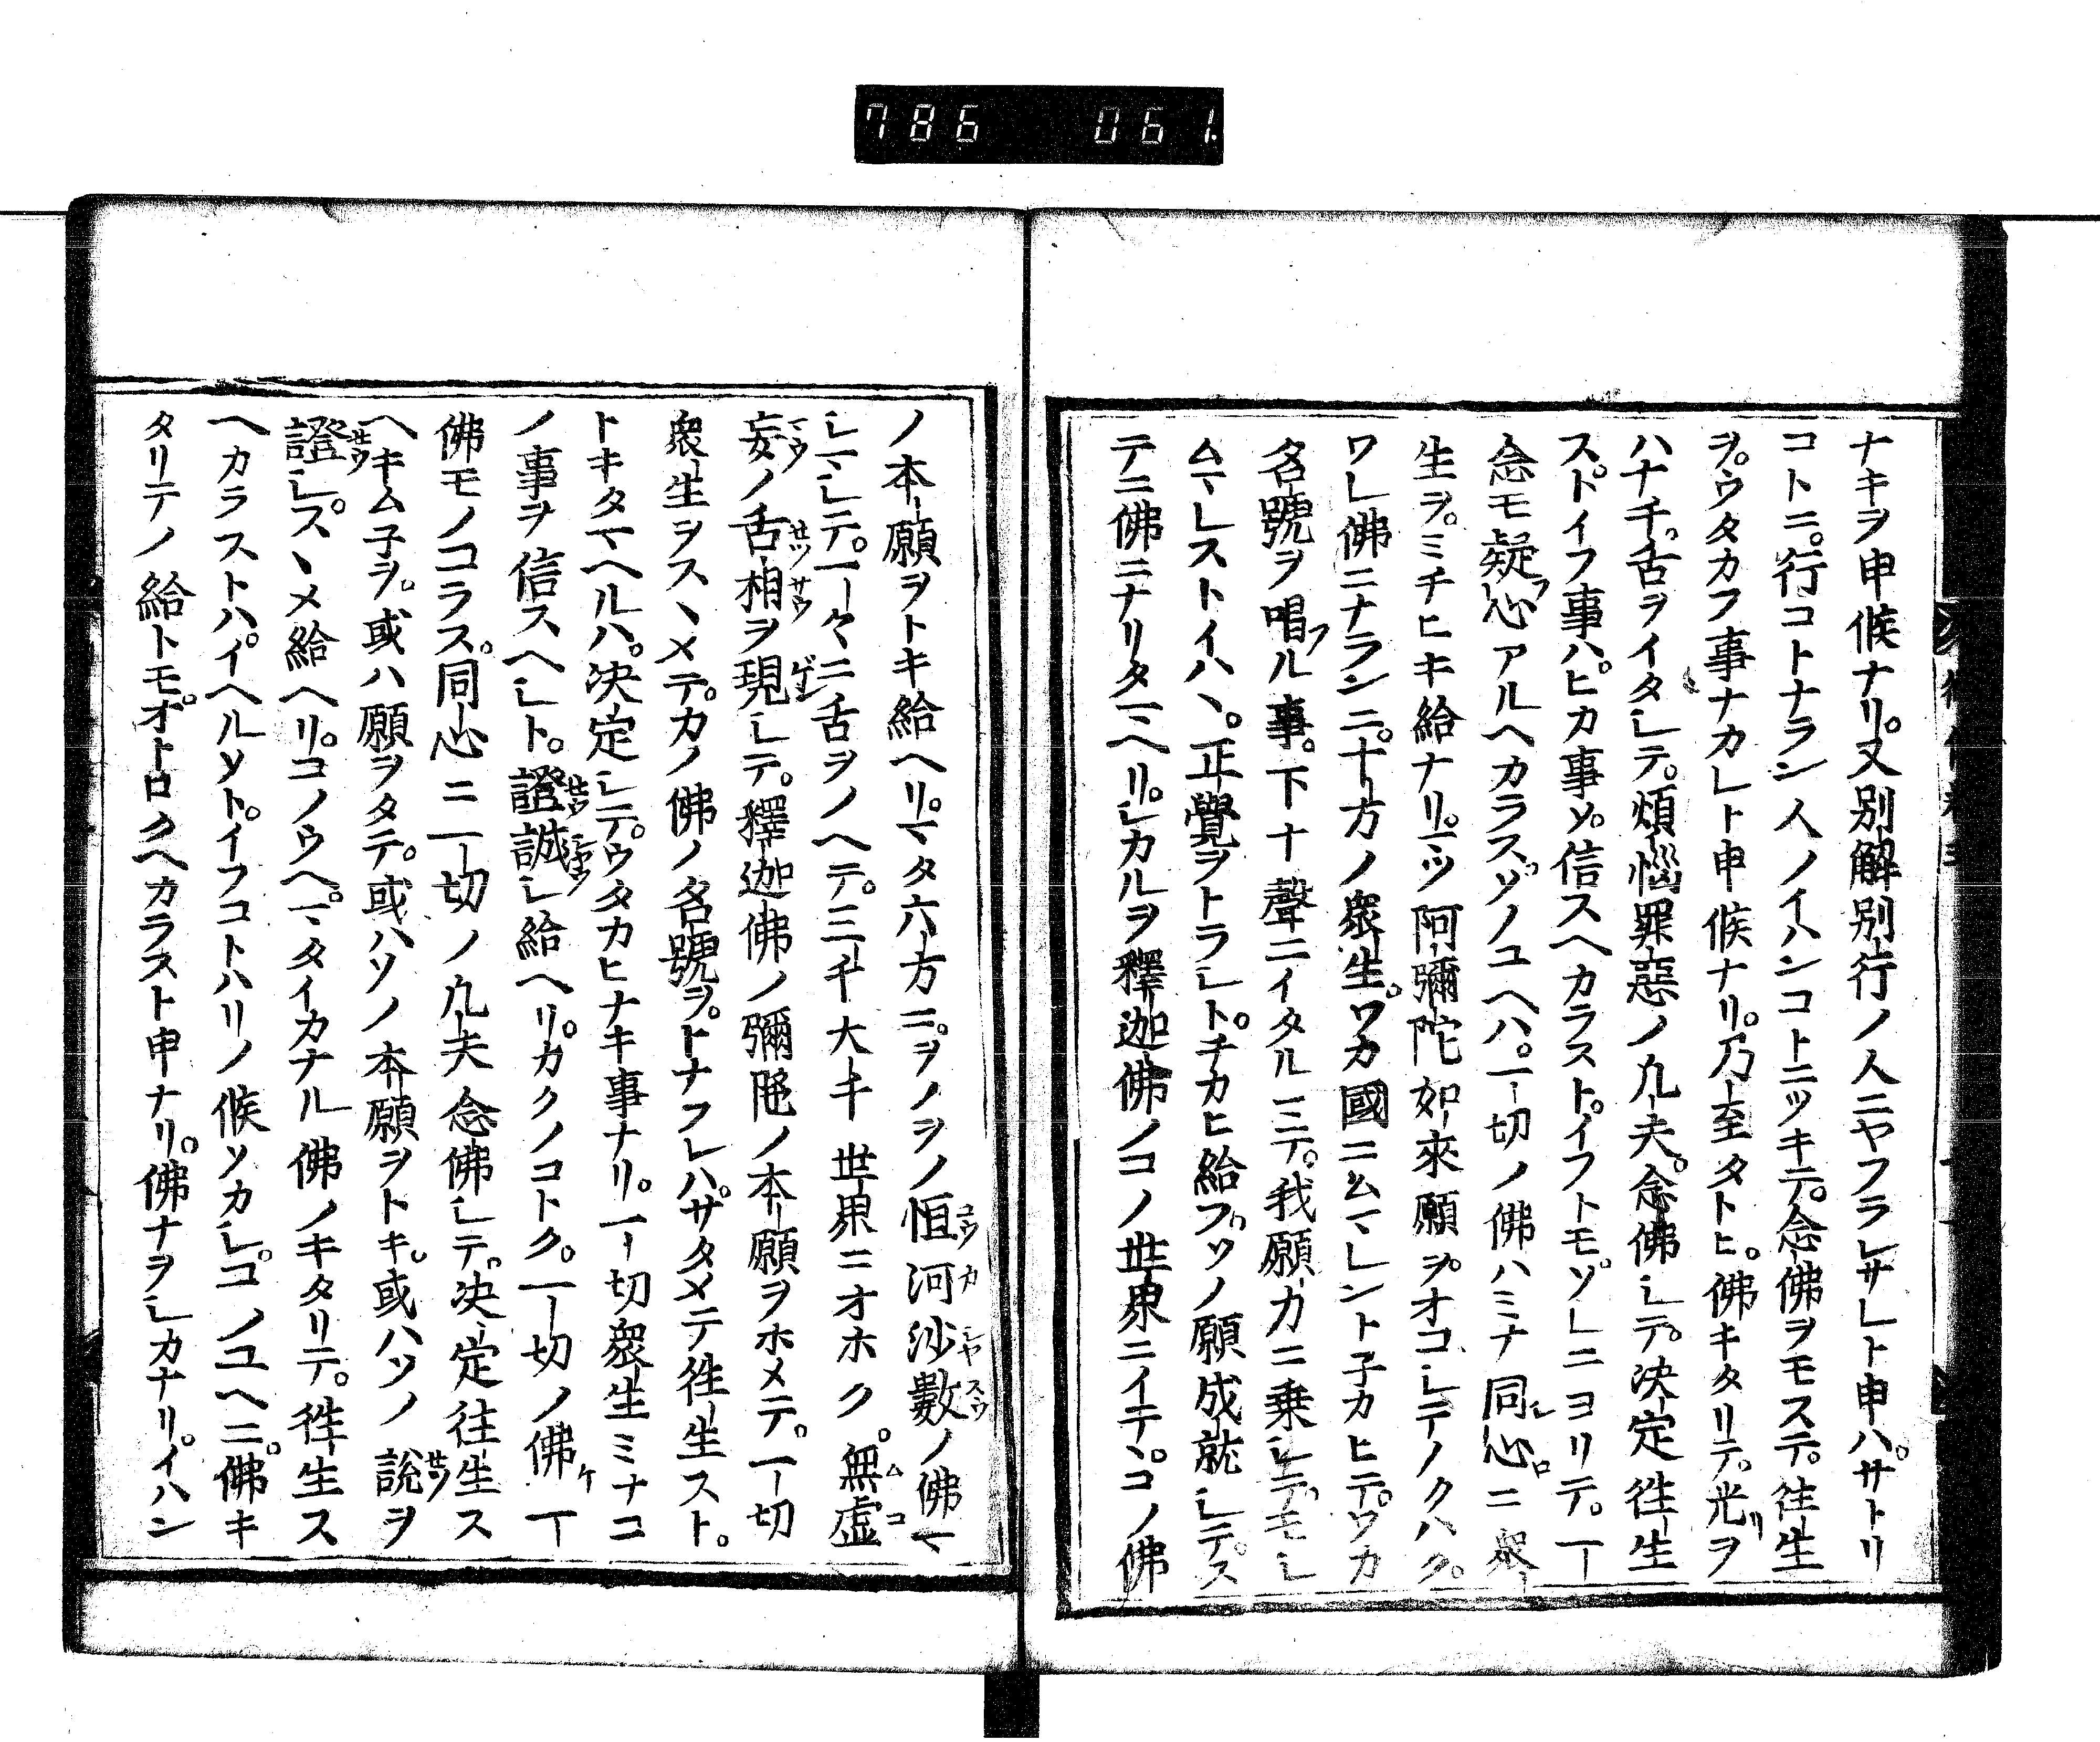 786 061
ナキヲ申候ナリ。又別解別行ノ人ニヤフラレサレト申ハ。サトリ
コトニ。行コトナラン人ノイハンコトニツキテ。念佛ヲモステ。往生
ヲ。ウタカフ事ナカレト申候ナリ。乃至タトヒ。佛キタリテ。光ヲ
ハナチ。舌ヲイタシテ。煩惱罪惡ノ凡夫。念佛シテ。決定往生
ストイフ事ハ。ヒカ事ソ。信スヘカラスト。イフトモ。ソレニヨリテ。一
念モ疑フ心アルヘカラス。ソノユヘハ。一切ノ佛ハミナ同シ心ニ衆
生ヲ。ミチヒキ給ナリ。マツ阿彌陀如來願ヲ。オコシテノタマハク。
ワレ佛ニナランニ。十方ノ衆生。ワカ國ニムマレント子カヒテ。ワカ
名號ヲ唱フル事。下十聲ニイタルマテ。我願力ニ乗シテ。モシ
ムマレストイハヽ。正覺ヲトラシト。チカヒ給フ。ソノ願成就シテ。ス
テニ佛ニナリタマヘリ。シカルヲ釋迦佛ノコノ世界ニイテヽ。コノ佛
ノ本願ヲトキ給ヘリ。マタ六方ニ。ヲノヲノ恒河沙數ノ佛マ
シマシテ。一々ニ舌ヲノヘテ。三千大千世界ニオホク。無虛
妄ノ舌相ヲ現シテ。釋迦佛ノ彌陀ノ本願ヲホメテ。一切
衆生ヲスヽメテ。カノ佛ノ名號ヲ。トナフレハ。サタメテ往生スト。
トキタマヘルハ。決定シテ。ウタカヒナキ事ナリ。一切衆生ミナコ
ノ事ヲ信スヘシト。證誠シ給ヘリ。カクノコトク。一切ノ佛一
佛モノコラス。同心ニ一切ノ凡夫念佛シテ。決定往生ス
ヘキム子ヲ。或ハ願ヲタテ。或ハソノ本願ヲトキ。或ハソノ說ヲ
證シ。スヽメ給ヘリ。コノウヘ。マタイカナル佛ノキタリテ。往生ス
ヘカラストハ。イヘルソト。イフコトハリノ候ソカシ。コノユヘニ。佛キ
タリテノ給トモ。オトロクヘカラスト申ナリ。佛ナヲシカナリ。イハン